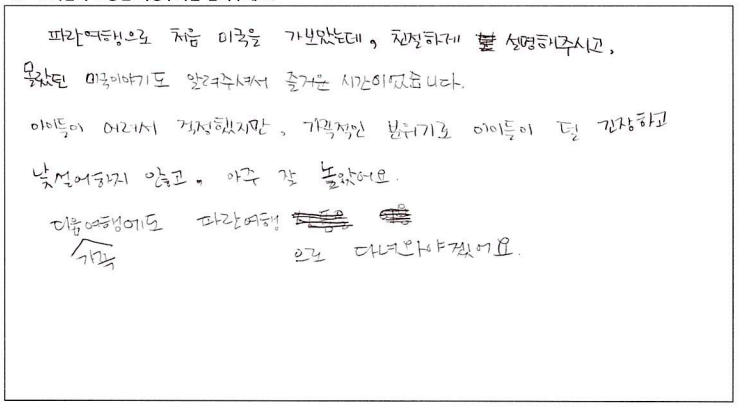 파란여행으로 처음 미국을 가보았는데, 친절하게 설명해주시고,
몰랐던 미국이야기도 알려주셔서 즐거운 시간이었습니다.
아이들이 어려서 걱정했지만, 가족적인 분위기로 아이들이 덜 긴장하고
낯설어하지 않고, 아주 잘 놀았어요.
다음 가족여행에도 파란여행
으로 다녀와야겠어요.